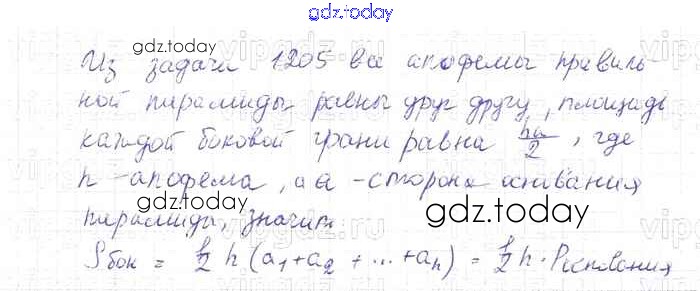 gdz.today
gdz.today
Из задачи 1205 все апофемы правиль-
ной пирамиды равны друг другу, площадь
каждой боковой грани равна ha/2, где
h - апофема, а a - сторона основания
gdz.today
пирамиды, значит
gdz.today
Sбок = 1/2 h (a₁+a₂ + ... + aₙ) = 1/2 h · Pоснования